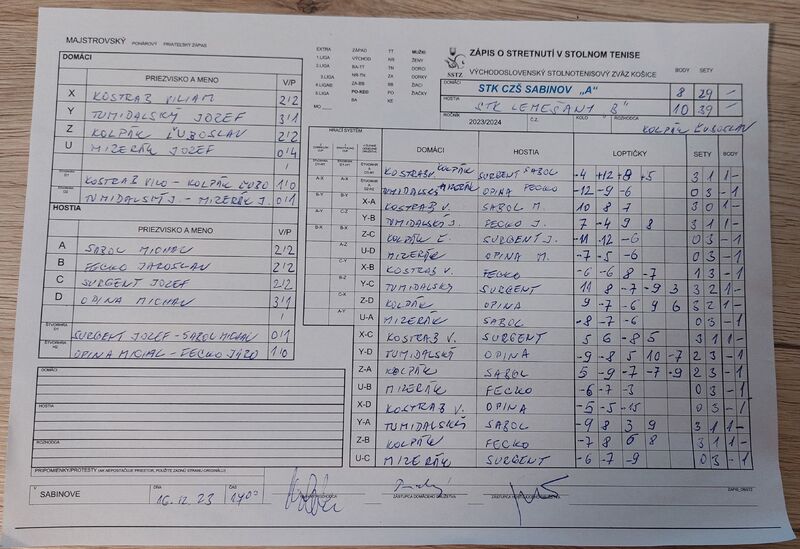 MAJSTROVSKÝ POHÁROVÝ PRIATEĽSKÝ ZÁPAS
DOMÁCI
PRIEZVISKO A MENO V/P
X KOSTRAB VILIAM 2/2
Y TUMIDALSKÝ JOZEF 3/1
Z KOLPÁK ĽUBOSLAV 2/2
U MIZERÁK JOZEF 0/4
KOSTRAB VILO - KOLPÁK ĽUBO 1/0
TUMIDALSKÝ J. - MIZERÁK J. 0/1
HOSTIA
PRIEZVISKO A MENO V/P
A SABOL MICHAL 2/2
B FECKO JAROSLAV 2/2
C SURGENT JOZEF 2/2
D OPINA MICHAL 3/1
SURGENT JOZEF - SABOL MICHAL 0/1
OPINA MICHAL - FECKO JARO 1/0
DOMÁCI
HOSTIA
ROZHODCA
PRIPOMIENKY/PROTESTY (AK NEPOSTAČUJE PRIESTOR, POUŽITE ZADNÚ STRANU ORIGINÁLU)
V SABINOVE DŇA 16.12.23 ČAS 17.00
EXTRA ZÁPAD TT MUŽI
1.LIGA VÝCHOD NR ŽENY
2.LIGA BA-TT TN DORCI
3.LIGA NR-TN ZA DORKY
4.LIGA ZA-BB BB ŽIACI
5.LIGA PO-KE PO ŽIAČKY
BA KE
MO
SSTZ
ZÁPIS O STRETNUTÍ V STOLNOM TENISE
VÝCHODOSLOVENSKÝ STOLNOTENISOVÝ ZVÄZ KOŠICE BODY SETY
DOMÁCI STK CZŠ SABINOV „A" 8 29 -
HOSTIA STK LEMEŠANY B" 10 39 -
ROČNÍK 2023/2024 Č.Z. KOLO ROZHODCA KOLPÁK ĽUBOSLAV
HRACÍ SYSTÉM
DOMÁCI HOSTIA LOPTIČKY SETY BODY
KOSTRAB KOLPÁK SURGENT SABOL -4 +12 +8 +5 3 1 1 -
TUMIDALSKÝ MIZERÁK OPINA FECKO -12 -9 -6 0 3 - 1
X-A KOSTRAB V. SABOL M 10 8 7 3 0 1 -
Y-B TUMIDALSKÝ J. FECKO J. 7 -4 9 8 3 1 1 -
Z-C KOLPÁK Ľ. SURGENT J. -11 -12 -6 0 3 - 1
U-D MIZERÁK OPINA M. -7 -5 -6 0 3 - 1
X-B KOSTRAB V. FECKO -6 -6 8 -7 1 3 - 1
Y-C TUMIDALSKÝ SURGENT 11 8 -7 -9 3 3 2 1 -
Z-D KOLPÁK OPINA 9 -7 -6 9 6 3 2 1 -
U-A MIZERÁK SABOL -8 -7 -6 0 3 - 1
X-C KOSTRAB V. SURGENT 5 6 -8 5 3 1 1 -
Y-D TUMIDALSKÝ OPINA -9 -8 5 10 -7 2 3 - 1
Z-A KOLPÁK SABOL 5 -9 -7 7 -9 2 3 - 1
U-B MIZERÁK FECKO -6 -7 -3 0 3 - 1
X-D KOSTRAB V. OPINA -5 -5 -15 0 3 - 1
Y-A TUMIDALSKÝ SABOL -9 8 3 9 3 1 1 -
Z-B KOLPÁK FECKO -7 8 6 8 3 1 1 -
U-C MIZERÁK SURGENT -6 -7 -9 0 3 - 1
ZÁSTUPCA DOMÁCEHO DRUŽSTVA